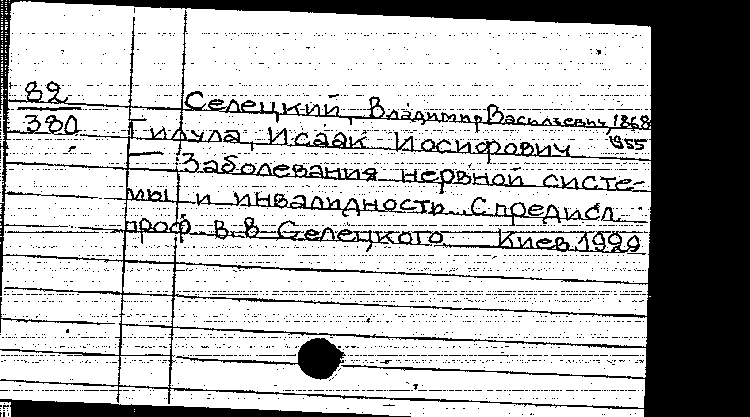 82
380
Селецкий, Владимир Васильевич, 1868
1955
Гилула, Исаак Иосифович
— Заболевания нервной систе-
мы и инвалидность. С предисл.
проф. В.В Селецкого Киев. 1929